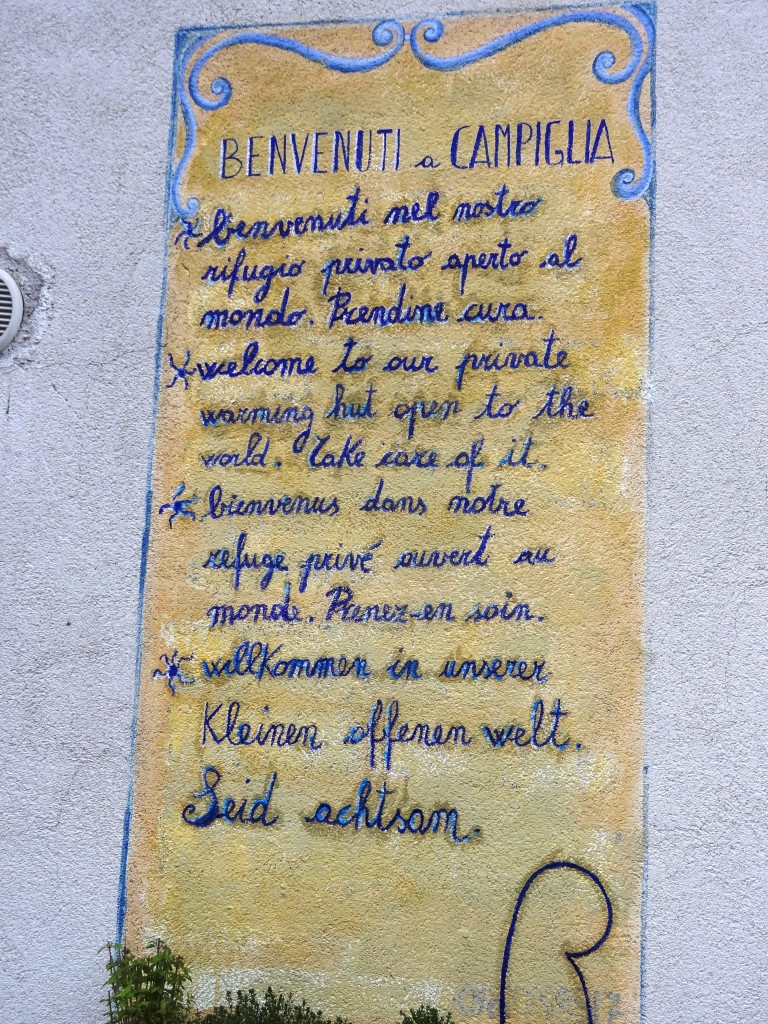 BENVENUTI a CAMPIGLIA
benvenuti nel nostro
rifugio privato aperto al
mondo. Prendine cura.
welcome to our private
warming hut open to the
world. Take care of it.
bienvenus dans notre
refuge privé ouvert au
monde. Prenez-en soin.
willkommen in unserer
Kleinen offenen welt.
Seid achtsam.